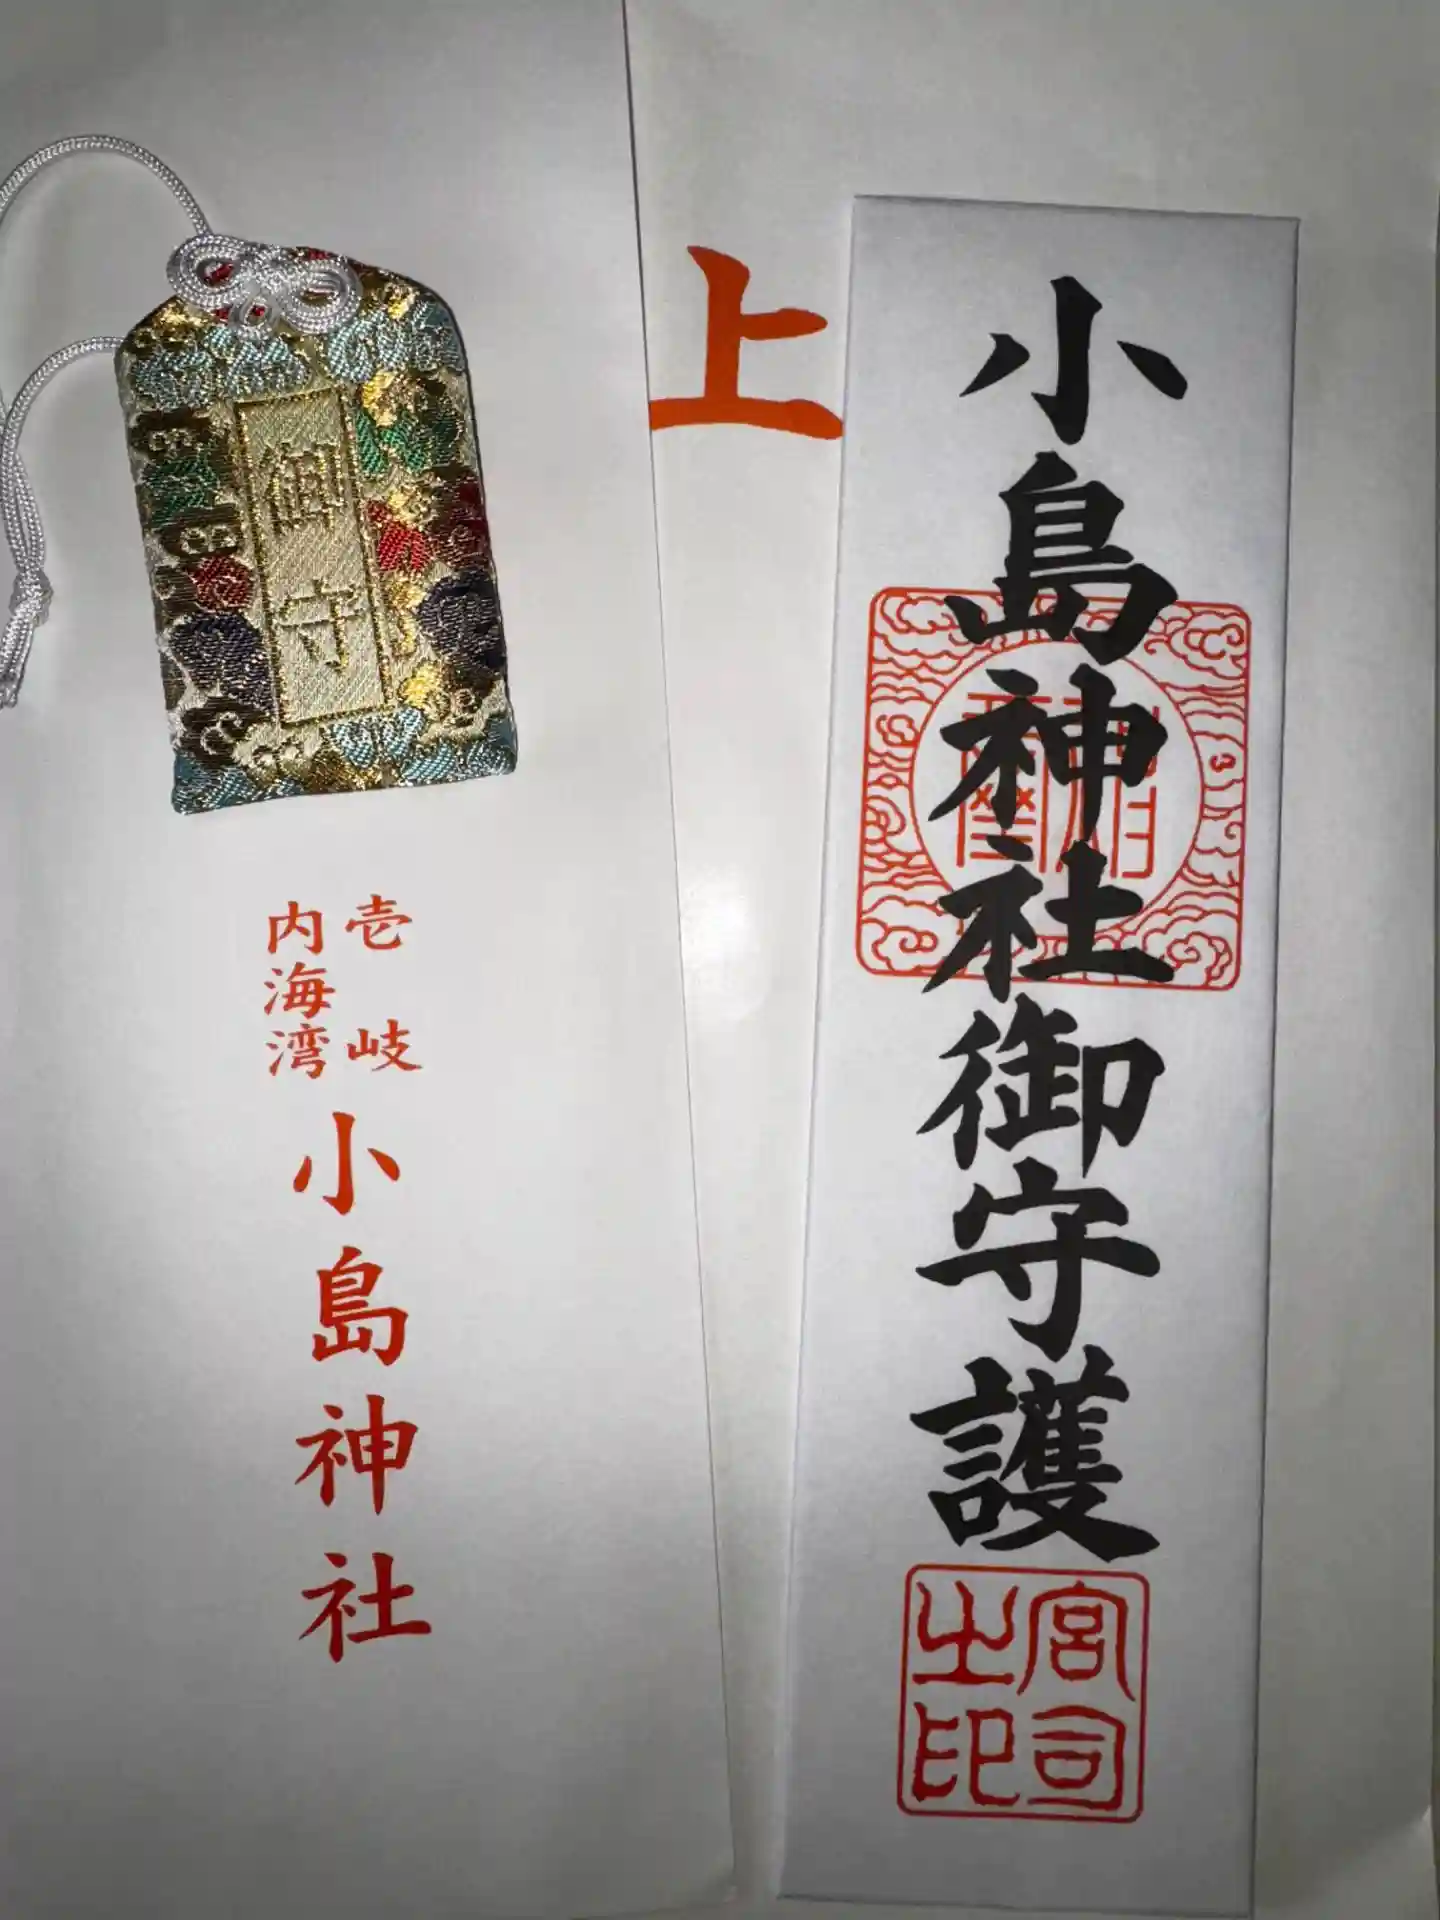 御守
壱岐
内海湾
小島神社
上
小島神社御守護
宮司
之印